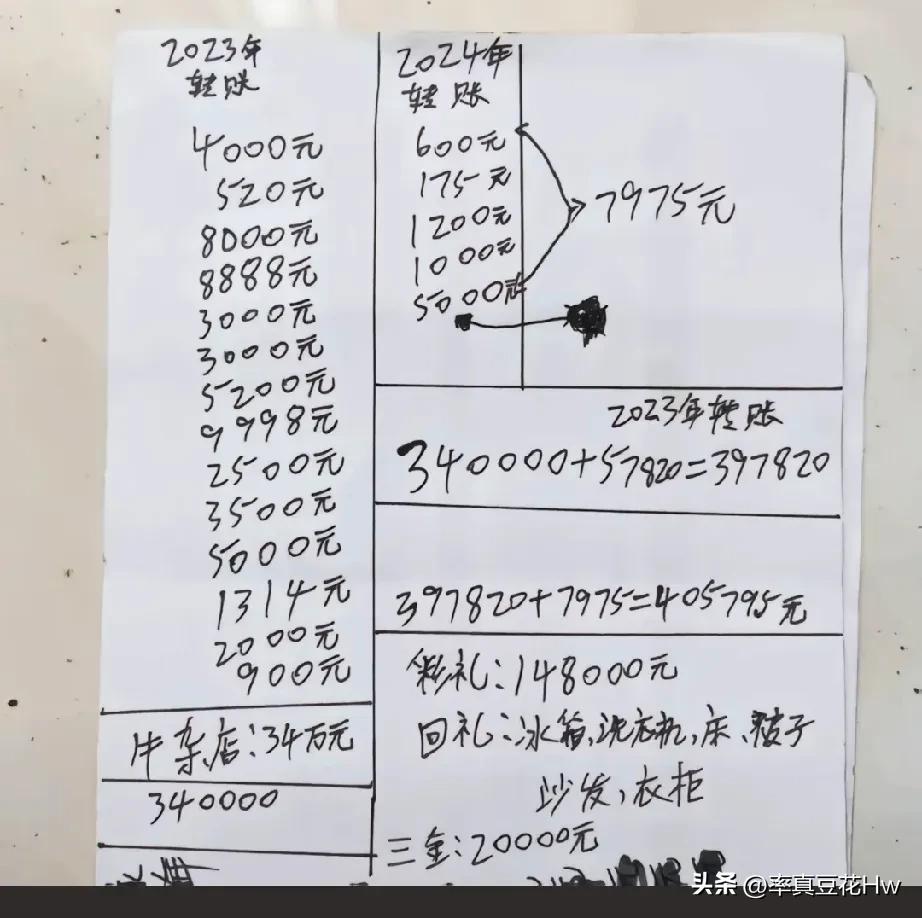 2023年
转账
4000元
520元
8000元
8888元
3000元
3000元
5200元
9998元
2500元
3500元
5000元
1314元
2000元
900元
牛杂店:34万元
340000
2024年
转账
600元
175元
1200元
1000元
5000元
7975元
2023年转账
340000+57820=397820
397820+7975=405795元
彩礼:148000元
回礼:冰箱,洗衣机,床、被子
沙发,衣柜
三金:20000元
头条 @率真豆花Hw